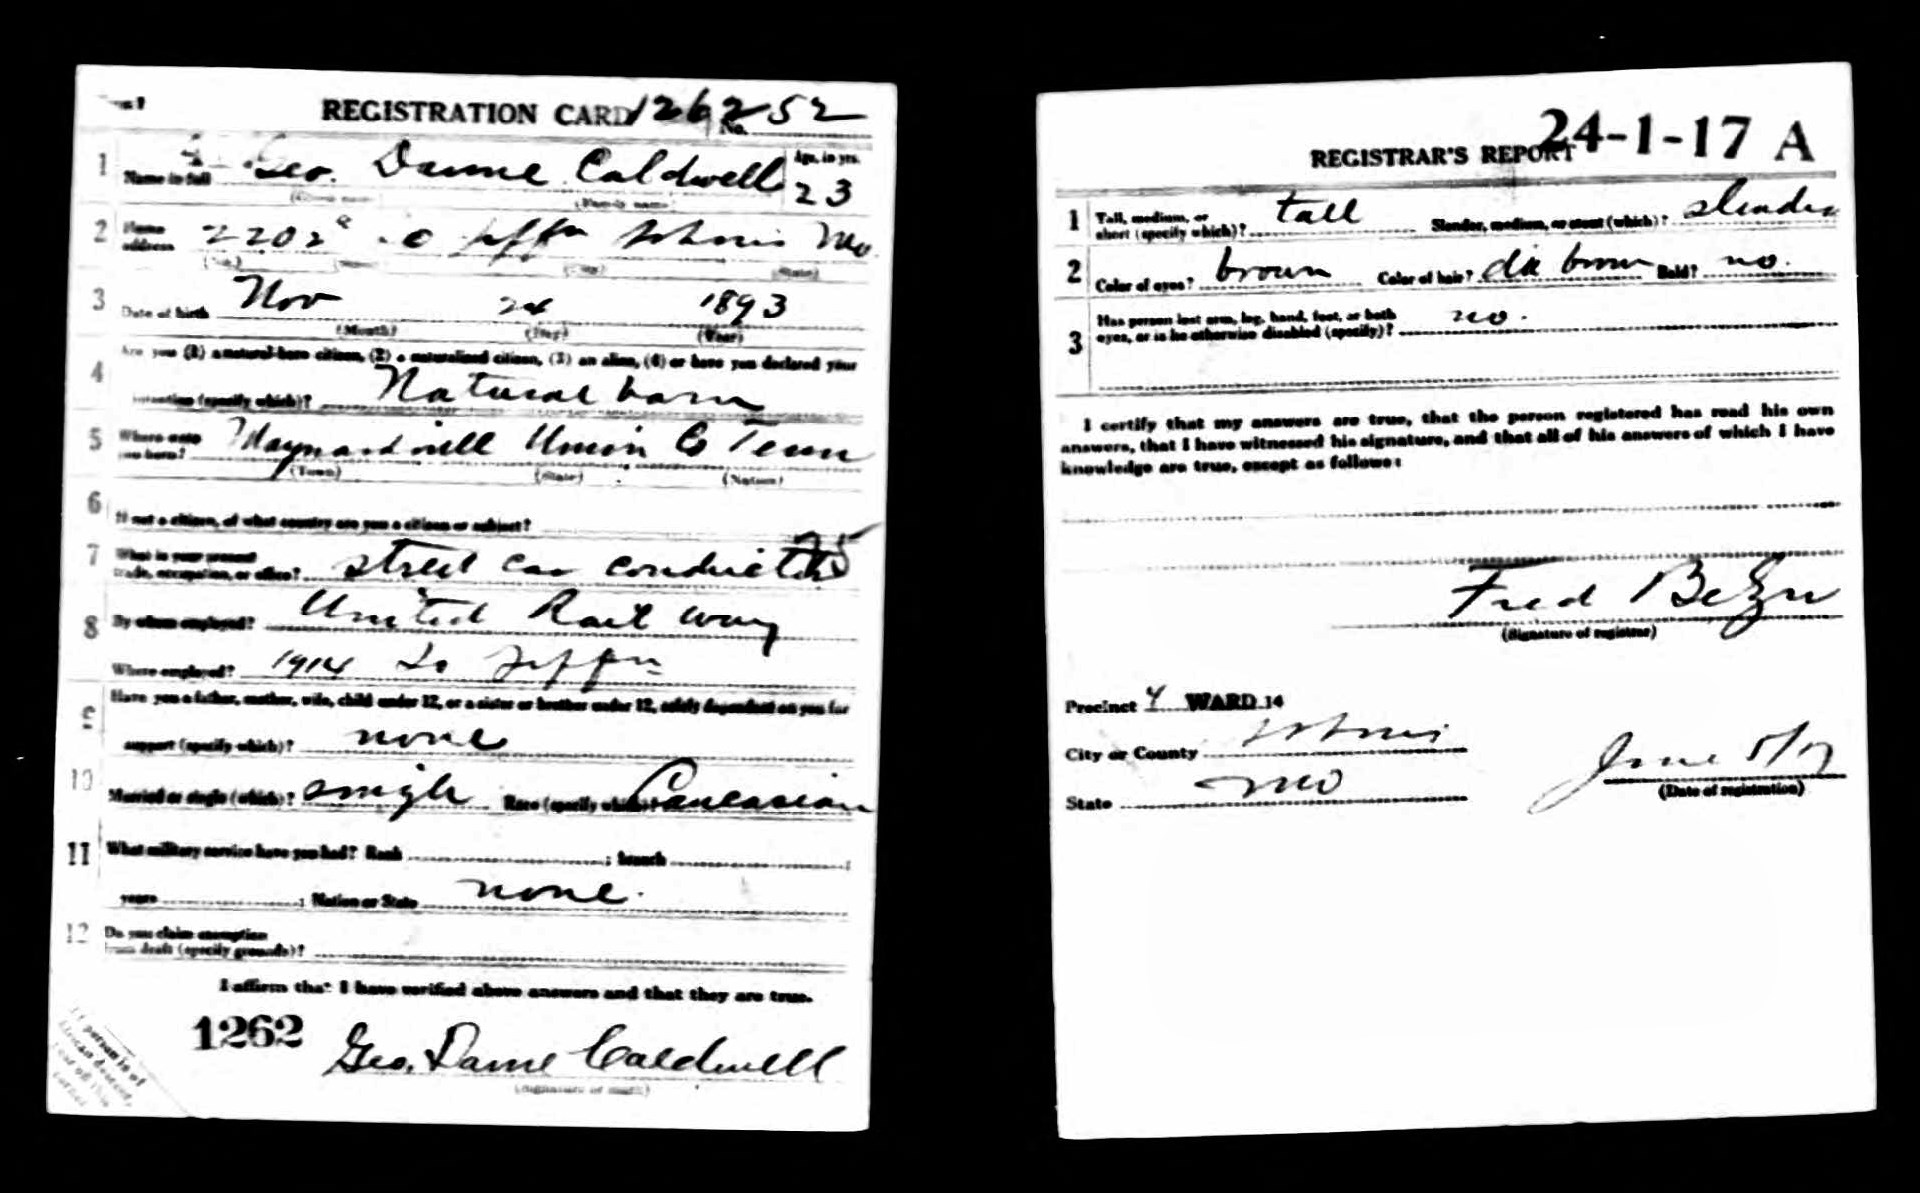 REGISTRATION CARD No. 126 252
1 Name in full Geo. Danne Caldwell Age, in yrs. 23
(Given name) (Family name)
2 Home address 2202 a So Jeffn St Louis Mo
(No.) (Street) (City) (State)
3 Date of birth Nov 24 1893
(Month) (Day) (Year)
4 Are you (1) a natural-born citizen, (2) a naturalized citizen, (3) an alien, (4) or have you declared your
intention (specify which)? Natural born
5 Where were you born? Maynardville Union Co Tenn
(Town) (State) (Nation)
6 If not a citizen, of what country are you a citizen or subject?
7 What is your present trade, occupation, or office? street car conductor 25
8 By whom employed? United Rail way
Where employed? 1914 So Jeffn
9 Have you a father, mother, wife, child under 12, or a sister or brother under 12, solely dependent on you for
support (specify which)? none
10 Married or single (which)? single Race (specify which)? Caucasian
11 What military service have you had? Rank ; branch ;
years ; Nation or State none.
12 Do you claim exemption
from draft (specify grounds)?
I affirm that I have verified above answers and that they are true.
1262 Geo. Danne Caldwell
(Signature or mark)
If person is of
African descent,
REGISTRAR'S REPORT 24-1-17 A
1 Tall, medium, or short (specify which)? tall Slender, medium, or stout (which)? slender
2 Color of eyes? brown Color of hair? dk brown Bald? no.
3 Has person lost arm, leg, hand, foot, or both
eyes, or is he otherwise disabled (specify)? no.
I certify that my answers are true, that the person registered has read his own
answers, that I have witnessed his signature, and that all of his answers of which I have
knowledge are true, except as follows:
Fred
(Signature of registrar)
Precinct 4 WARD 14
City or County St Louis
State Mo
June 5/17
(Date of registration)